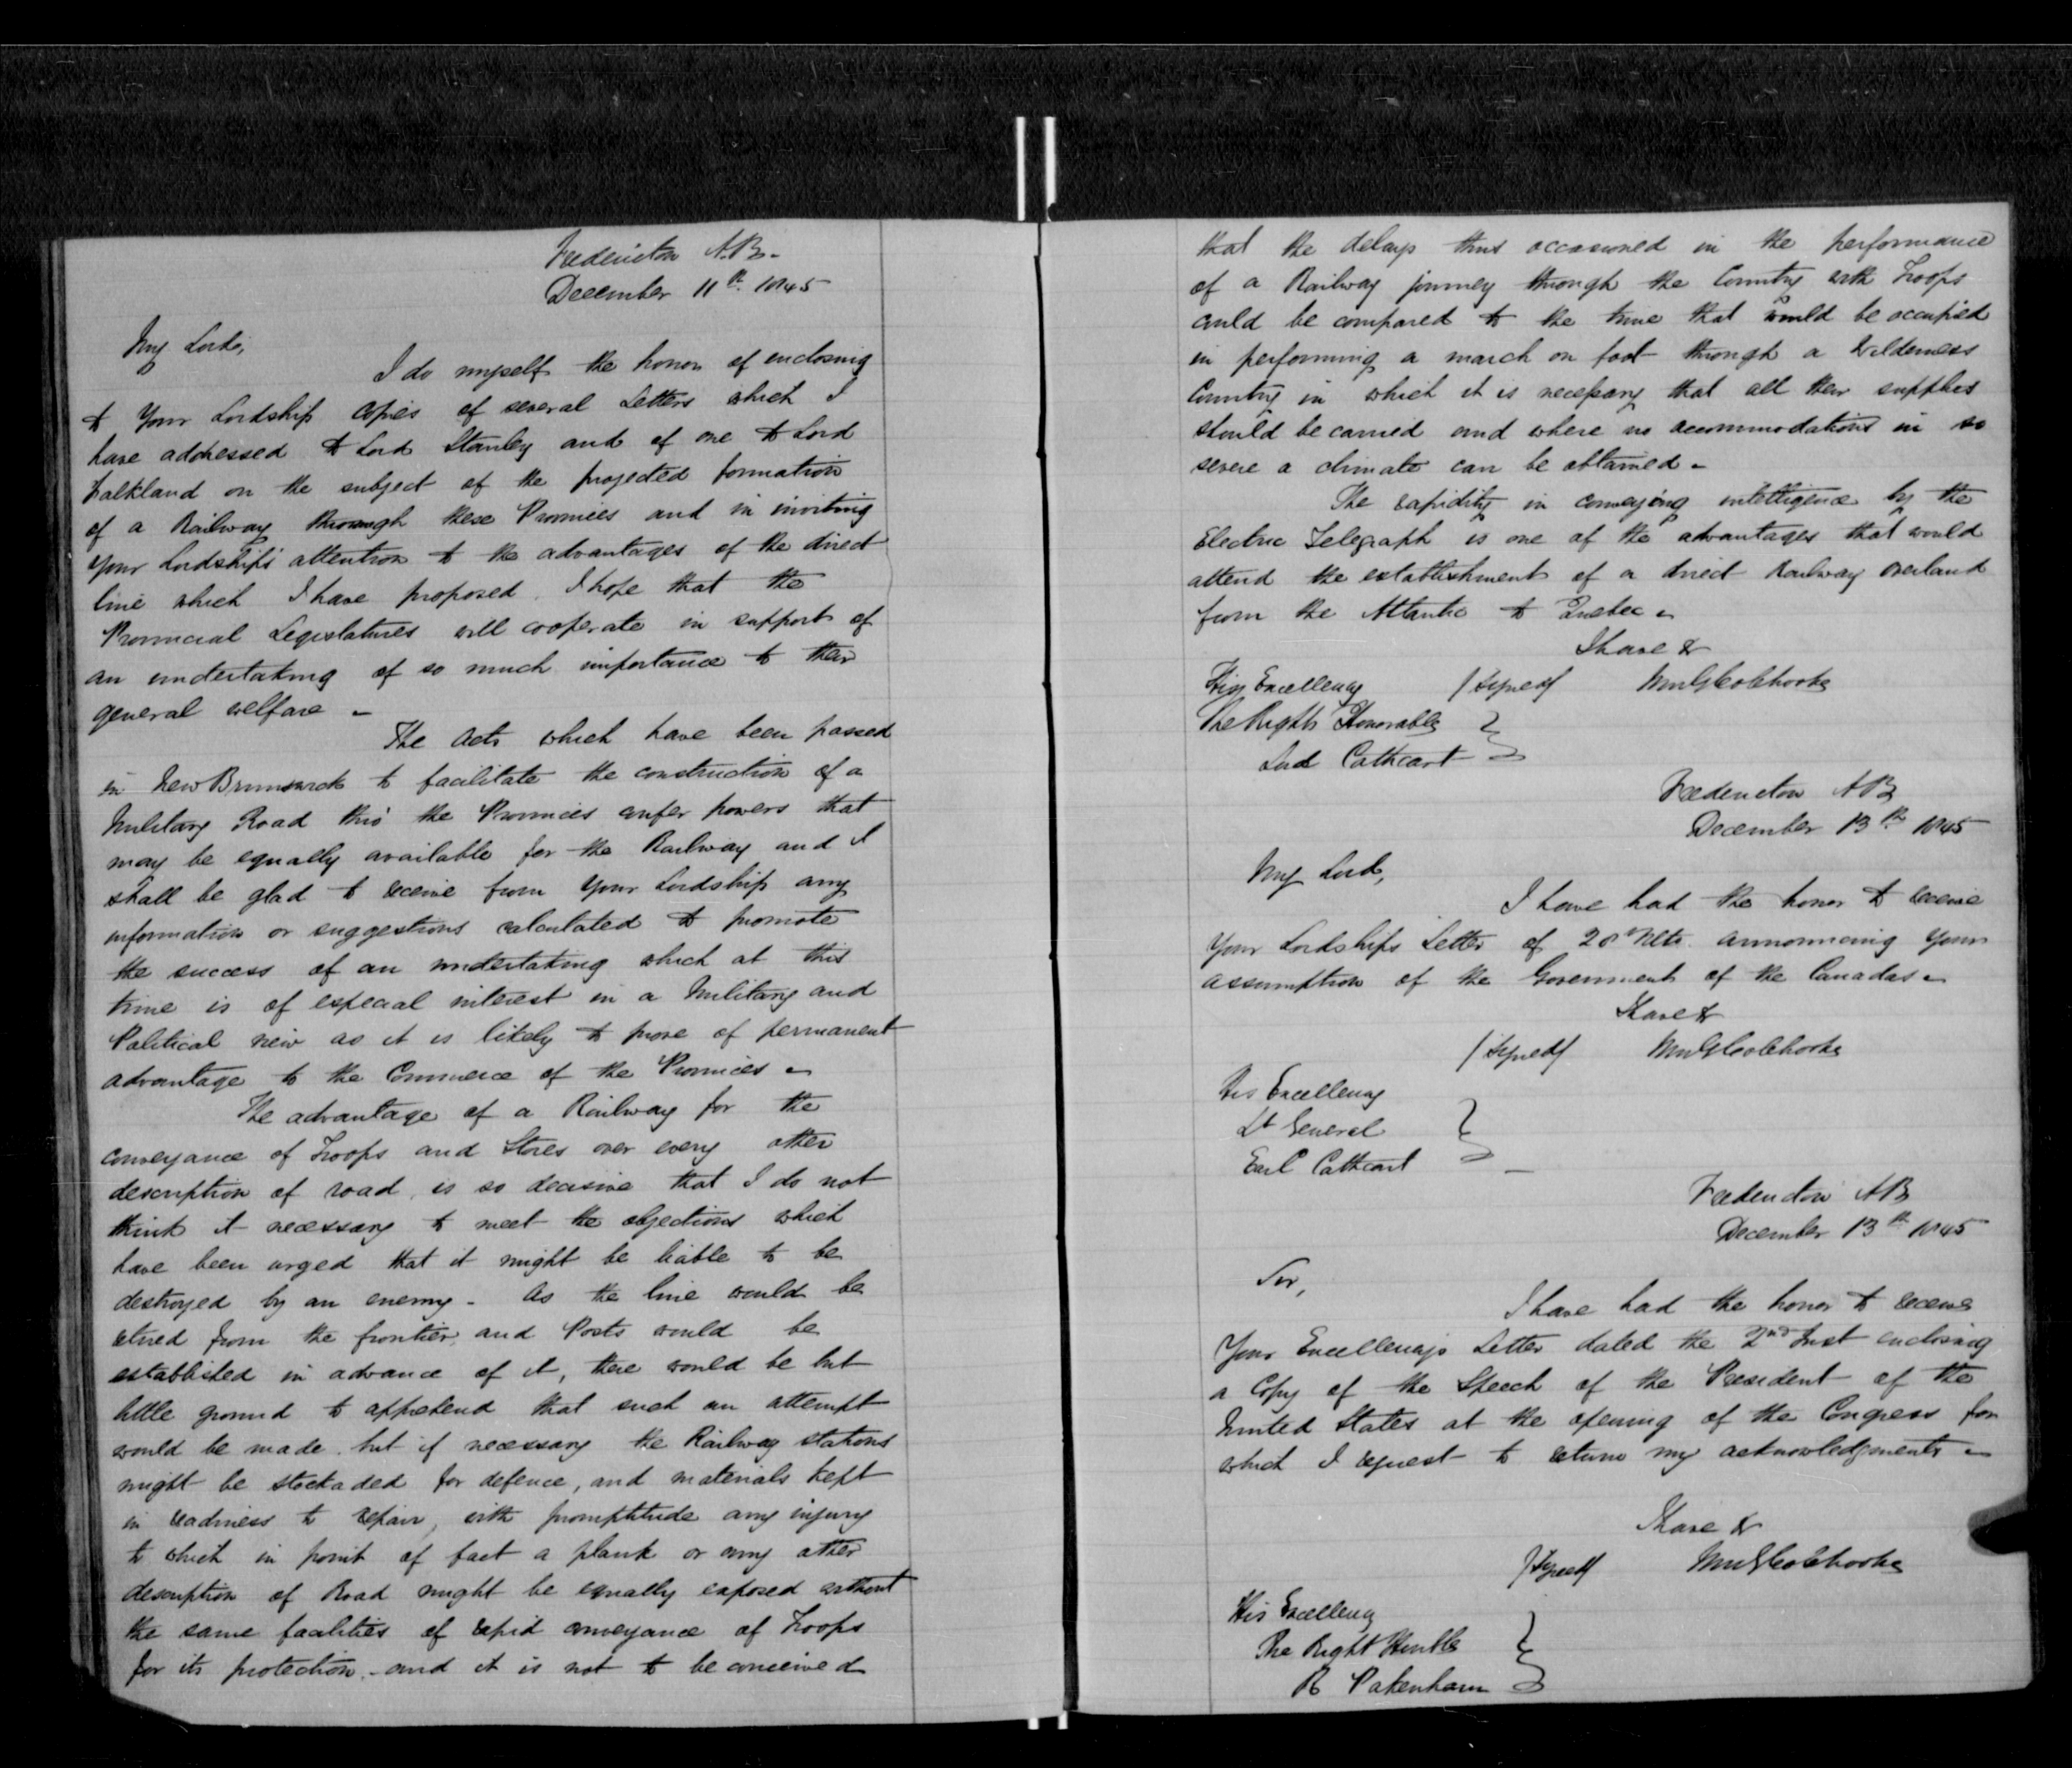 Fredericton N.B.
December 11th 1845
My Lord,
I do myself the honor of enclosing
to Your Lordship copies of several Letters which I
have addressed to Lord Stanley and of one to Lord
Falkland on the subject of the projected formation
of a Railway through these Provinces and in inviting
your Lordship's attention to the advantages of the direct
line which I have proposed. I hope that the
Provincial Legislatures will cooperate in support of
an undertaking of so much importance to their
general welfare -
The Acts which have been passed
in New Brunswick to facilitate the construction of a
Military Road thro' the Provinces confer powers that
may be equally available for the Railway and I
shall be glad to receive from Your Lordship any
information or suggestions calculated to promote
the success of an undertaking which at this
time is of especial interest in a Military and
Political view as it is likely to prove of permanent
advantage to the Commerce of the Provinces -
The advantage of a Railway for the
conveyance of Troops and Stores over every other
description of road, is so decisive that I do not
think it necessary to meet the objections which
have been urged that it might be liable to be
destroyed by an enemy - As the line would be
retired from the frontier, and Posts would be
established in advance of it, there would be but
little ground to apprehend that such an attempt
would be made, but if necessary the Railway stations
might be stockaded for defence, and materials kept
in readiness to repair, with promptitude any injury
to which in point of fact a plank or any other
description of Road might be equally exposed without
the same facilities of rapid conveyance of Troops
for its protection - and it is not to be conceived
that the delays thus occasioned in the performance
of a Railway journey through the Country with Troops
could be compared to the time that would be occupied
in performing a march on foot through a Wilderness
Country in which it is necessary that all their supplies
should be carried and where no accommodations in so
severe a climate can be obtained -
The rapidity in conveying intelligence by the
Electric Telegraph is one of the advantages that would
attend the establishment of a direct Railway overland
from the Atlantic to Quebec -
I have &
His Excellency /Signed/ WmGColebrooke
The Right Honorable
Lord Cathcart
Fredericton NB
December 13th 1845
My Lord,
I have had the honor to receive
Your Lordships Letter of 28 Ulto. announcing your
assumption of the Government of the Canadas -
I have &
/Signed/ WmGColebrooke
His Excellency
Lt General
Earl Cathcart
Fredericton NB
December 13th 1845
Sir,
I have had the honor to receive
Your Excellency's Letter dated the 2nd Inst enclosing
a Copy of the Speech of the President of the
United States at the opening of the Congress for
which I request to return my acknowledgments -
I have &
/Signed/ WmGColebrooke
His Excellency
The Right Honble
R Pakenham